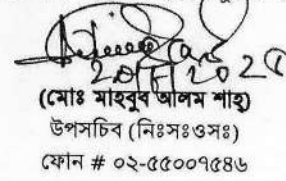 (মোঃ মাহবুব আলম শাহ্)
উপসচিব (নিঃসঃওসঃ)
ফোন # ০২-৫৫০০৭৫৪৬